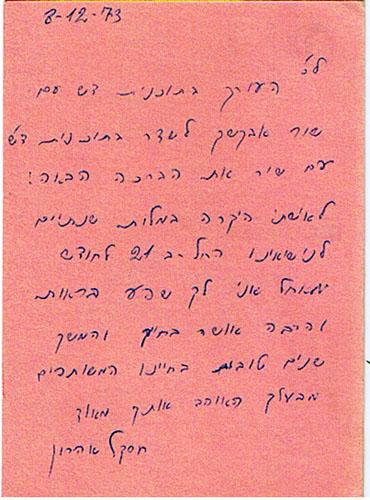 8-12-73
לכ'
העורך בתוכנית דש עם
שיר אבקשך לשדר בתוכנית ד"ש
עם שיר את הברכה הבאה:
לאשתי היקרה במלות שנתיים
לנישואינו החל ב- 21 לחודש
מאחל אני לך שפע בריאות
והרבה אושר בחיים והמשך
שנים טובות בחיינו המשותפים
מבעלך האוהב אותך מאוד
חסקל אהרון